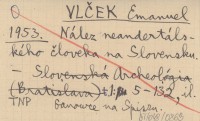 VLČEK Emanuel
1953. Nález neandertáls-
kého človeka na Slovensku.
– Slovenská Archeológia
(Bratislava) 1: 5–132, il.
TNP Ganovce na Spišu.